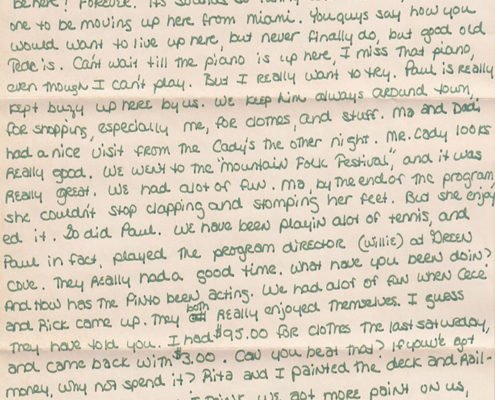 be here! Forever. It's sounds so
one to be moving up here from Miami. You guys say how you
would want to live up here, but never finally do, but good old
is. Can't wait till the piano is up here, I miss that piano,
even though I can't play. But I really want to try. Paul is really
kept busy up here by us. We keep him always around town,
for shopping, especially me, for clothes, and stuff. Ma and Dad
had a nice visit from the Cady's the other night. Mr. Cady looks
really good. We went to the "Mountain Folk Festival", and it was
really great. We had alot of fun. Ma, by the end of the program
she couldn't stop clapping and stomping her feet. But she enjoy
ed it. So did Paul. We have been playin alot of tennis, and
Paul in fact, played the program director (Willie) at Green
Cove. They really had a good time. What have you been doin?
And how has the Pinto been acting. We had alot of fun when Cece
and Rick came up. They both really enjoyed themselves. I guess
they have told you. I had $95.00 for clothes the last saturday,
and came back with $3.00. Can you beat that? If you've got
money, why not spend it? Rita and I painted the deck and Rail-
I think we got more paint on us,